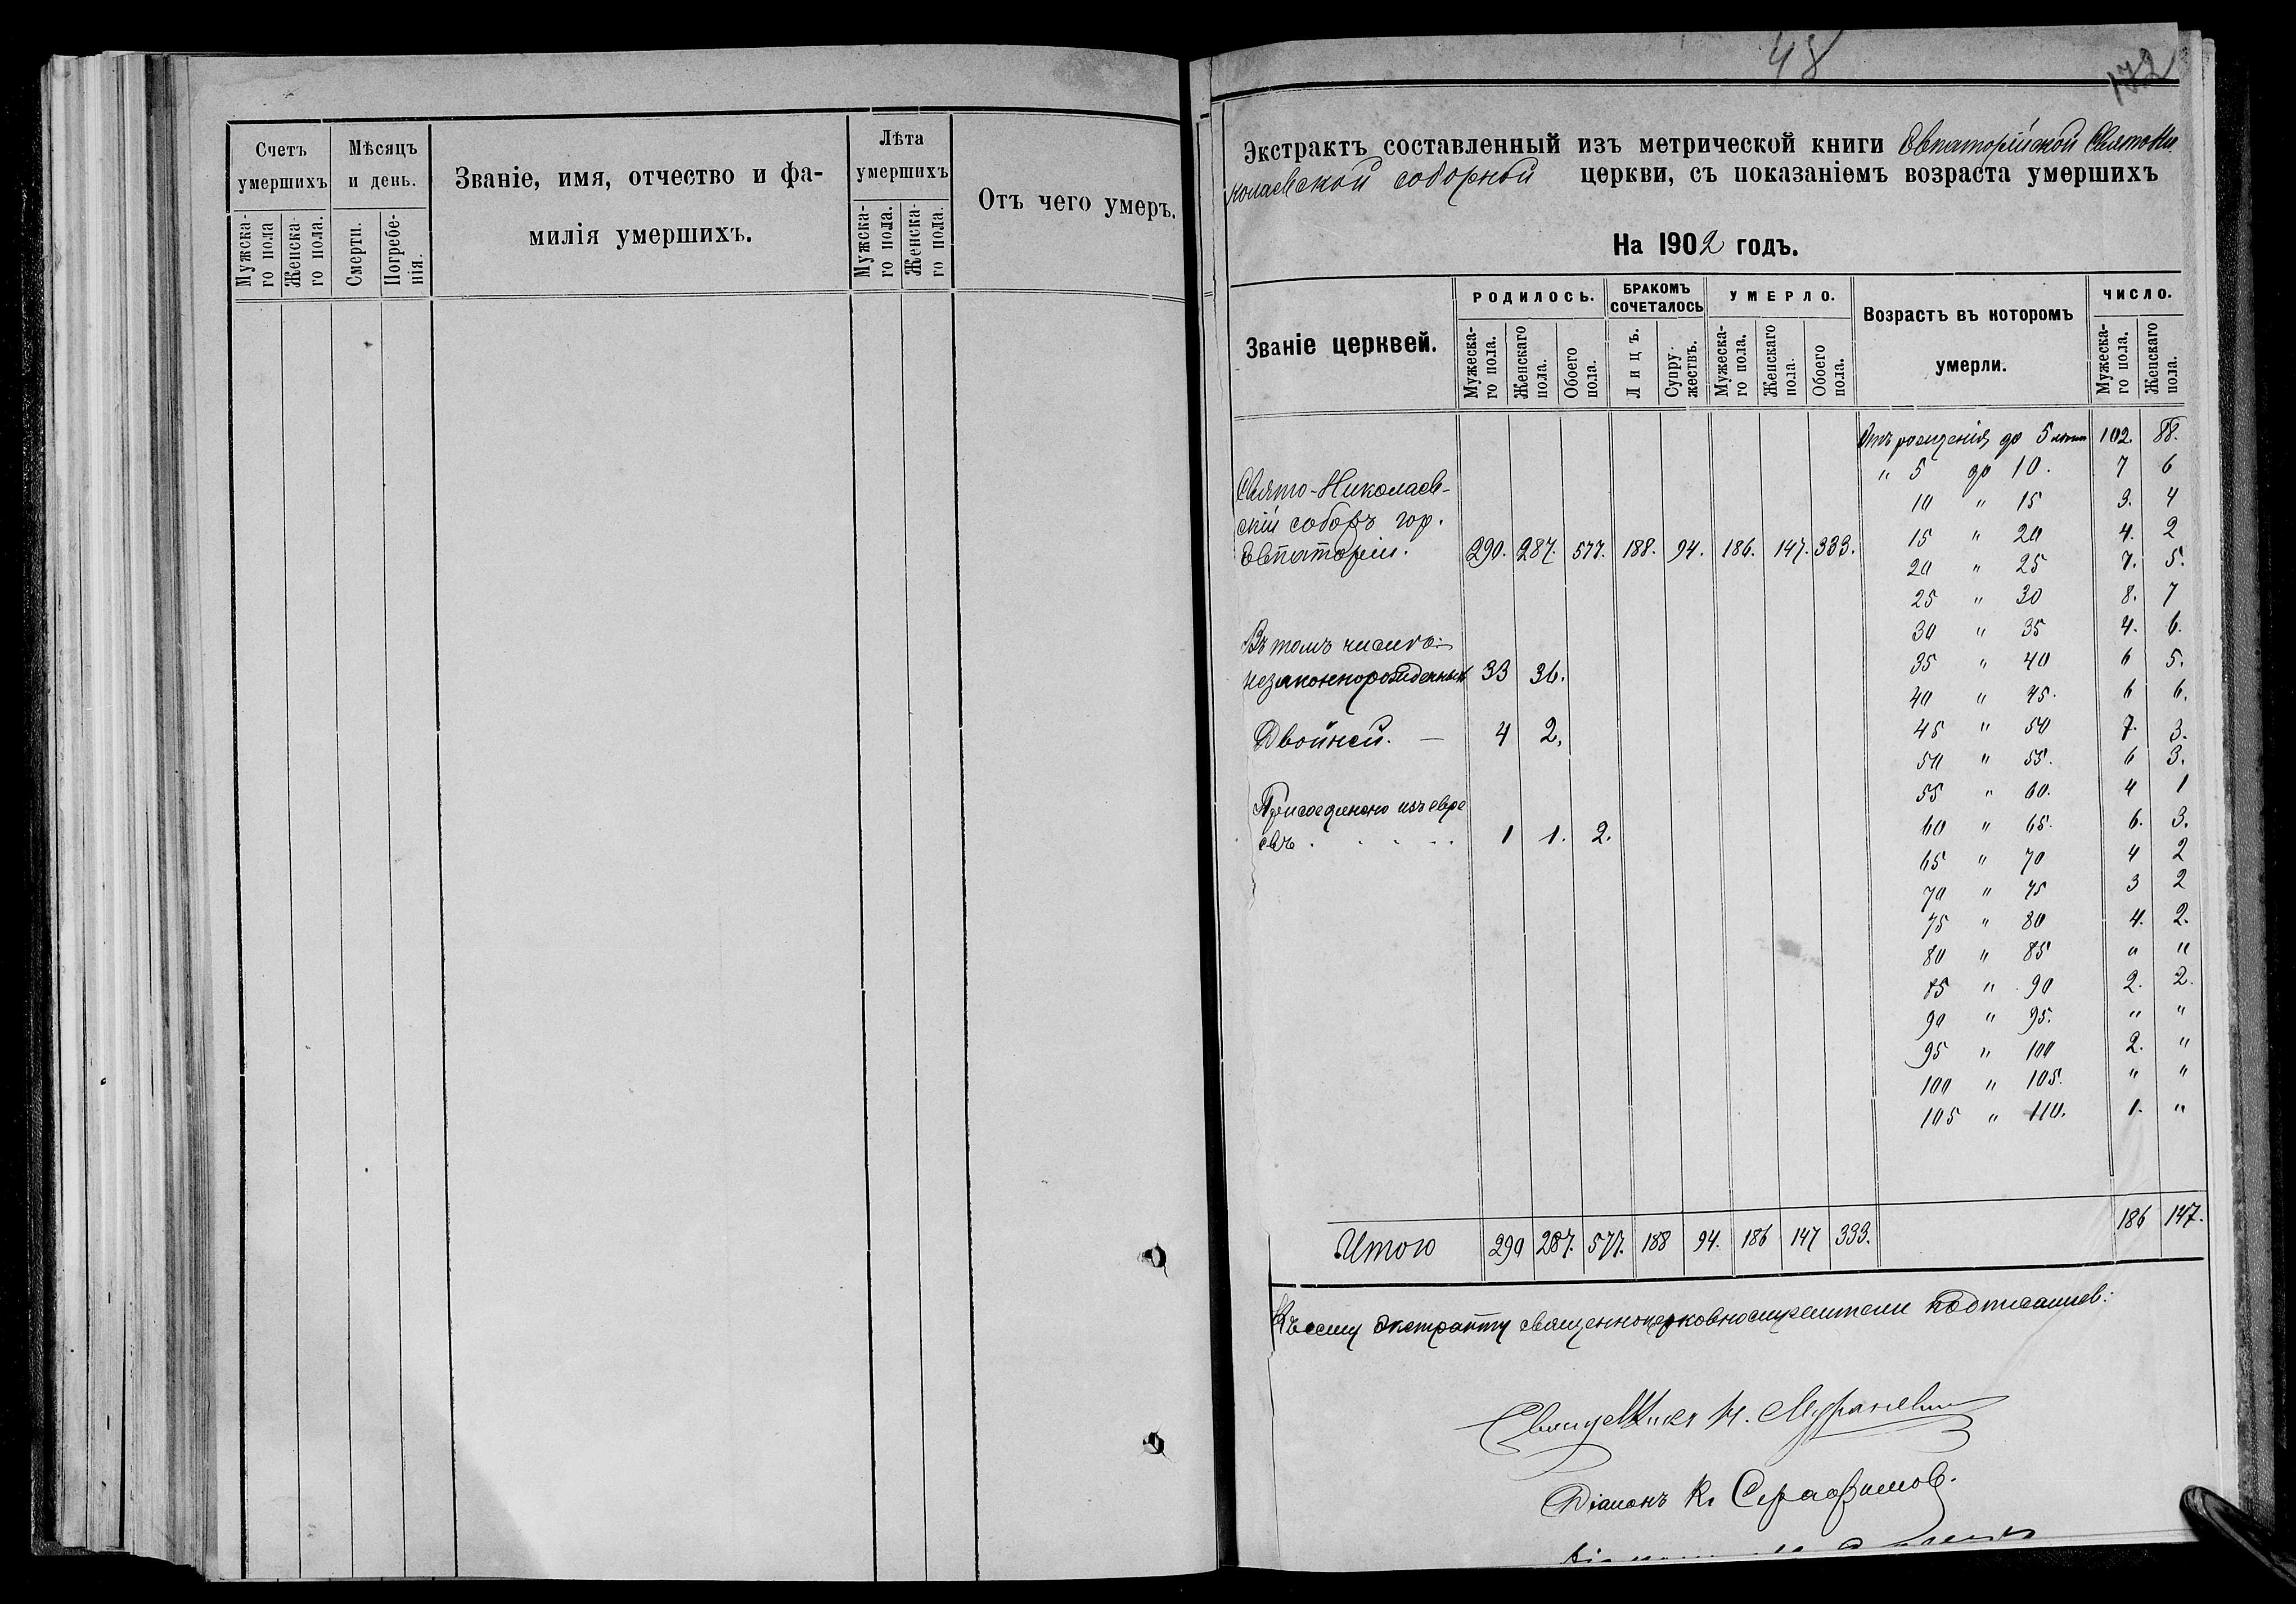 Счетъ умершихъ
Мужска-го пола
Женска-го пола.
Мѣсяцъ и день.
Смерти.
Погребе-нія.
Званіе, имя, отчество и фа-
милія умершихъ.
Лѣта умершихъ
Мужска-го пола.
Женска-го пола.
Отъ чего умеръ.
48
172
Экстрактъ составленный изъ метрической книги Евпаторійской Свято-Ни-
колаевской соборной церкви, съ показаніемъ возраста умершихъ
На 1902 годъ.
Званіе церквей.
РОДИЛОСЬ.
Мужеска-го пола.
Женскаго пола.
Обоего пола.
БРАКОМЪ СОЧЕТАЛОСЬ
Лицъ.
Супру-жествъ.
УМЕРЛО.
Мужеска-го пола.
Женскаго пола.
Обоего пола.
Возрастъ въ которомъ
умерли.
ЧИСЛО.
Мужеска-го пола.
Женскаго пола.
Свято-Николаев-
скій соборъ гор.
Евпаторіи. 290. 287. 577. 188. 94. 186. 147. 333.
Въ томъ числѣ:
незаконнорожденныхъ 33 36.
Двойней. — 4 2.
Присоединено изъ евре
евъ . . . . . 1 1. 2.
Отъ рожденія до 5 лѣтъ 102. 88.
" 5 до 10. 7 6
10 " 15 3. 4
15 " 20 4. 2
20 " 25 7. 5.
25 " 30 8. 7
30 " 35 4. 6.
35 " 40 6 5.
40 " 45. 6 6.
45 " 50 7. 3.
50 " 55. 6 3.
55 " 60. 4 1
60 " 65. 6. 3.
65 " 70 4 2
70 " 75 3 2
75 " 80 4. 2.
80 " 85 " "
85 " 90 2. 2.
90 " 95. " "
95 " 100 2. "
100 " 105. " "
105 " 110. 1. "
186 147.
Итого 290 287. 577. 188 94. 186 147 333.
Къ сему экстракту священноцерковнослужители подписались:
Священникъ Н.
Діаконъ К. Серафимовъ.